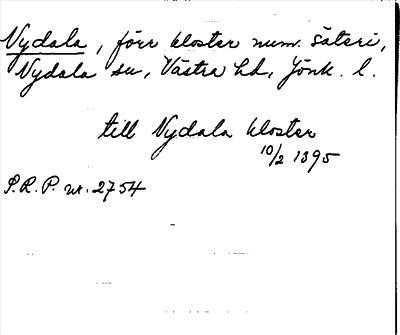 Nydala, förr kloster num. säteri,
Nydala sn, Västra hd, Jönk. l.
till Nydala kloster
10/2 1395
S.R.P. nr. 2754